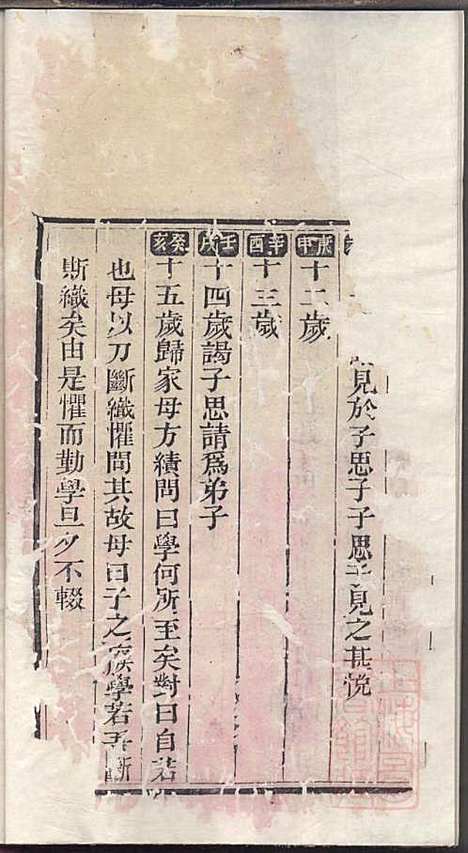 見於子思子子思子見之甚悅
庚申十二歲
辛酉十三歲
壬戌十四歲謁子思請為弟子
癸亥十五歲歸家母方績問曰學何所至矣對曰自若
也母以刀斷織懼問其故母曰子之廢學若吾斷
斯織矣由是懼而勤學旦夕不輟